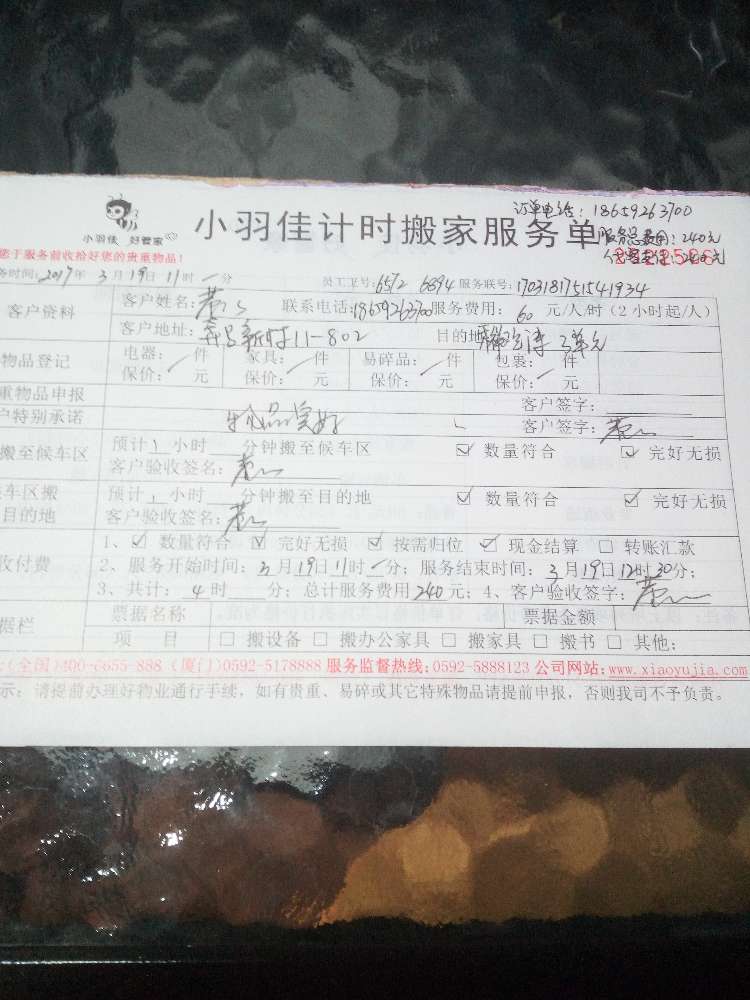 订单电话: 18659263700
小羽佳 好管家
小羽佳计时搬家服务单
服务总费用: 240元
您于服务前收拾好您的贵重物品!
务时间: 2017年 3月19日11时 一分
员工卫号: 6572 6894 服务联号: 1703181751541934
客户资料
客户姓名: 联系电话: 18659263700 服务费用: 60 元/人/时 (2小时起/人)
客户地址: 11-802 目的地
物品登记
电器: 件 家具: 件 易碎品: 件 包裹: 件
保价: 元 保价: 元 保价: 元 保价: 元
重物品申报 客户签字:
户特别承诺 客户签字:
搬至候车区 预计1小时 分钟搬至候车区 ☑ 数量符合 ☑ 完好无损
客户验收签名:
车区搬 预计1小时 分钟搬至目的地 ☑ 数量符合 ☑ 完好无损
目的地 客户验收签名:
收付费
1、☑ 数量符合 ☑ 完好无损 ☑ 按需归位 ☑ 现金结算 □ 转账汇款
2、服务开始时间: 3月19日11时一分; 服务结束时间: 3月19日12时30分;
3、共计: 4时 分; 总计服务费用240元; 4、客户验收签字:
据栏
票据名称 票据金额
项 目 □ 搬设备 □ 搬办公家具 □ 搬家具 □ 搬书 □ 其他:
(全国)400-6655-888 (厦门)0592-5178888 服务监督热线: 0592-5888123 公司网站: www.xiaoyujia.com
示: 请提前办理好物业通行手续, 如有贵重、易碎或其它特殊物品请提前申报, 否则我司不予负责。